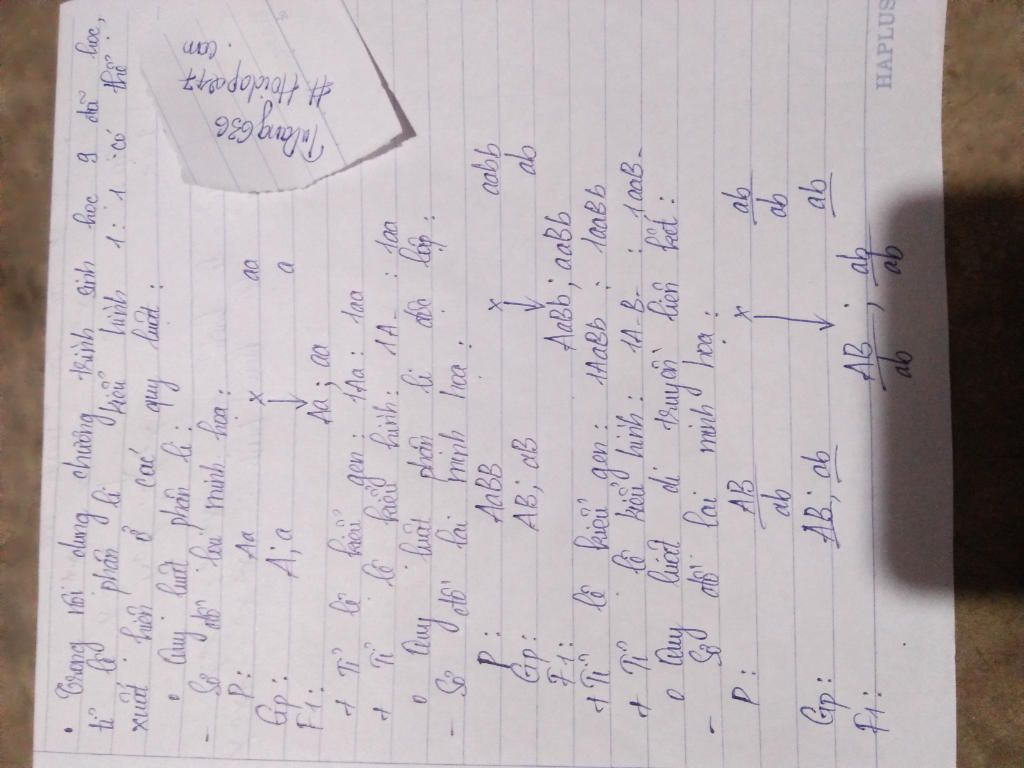 • Trong nội dung chương trình sinh học 9 đã học,
tỉ lệ phân li kiểu hình 1 : 1 có thể
xuất hiện ở các quy luật :
• Quy luật phân li :
- Sơ đồ lai minh họa :
P: Aa × aa
Gp: A; a a
F1: Aa ; aa
+ Tỉ lệ kiểu gen : 1Aa : 1aa
+ Tỉ lệ kiểu hình : 1A- : 1aa
• Quy luật phân li độc lập :
- Sơ đồ lai minh họa :
P: AaBB × aabb
Gp: AB; aB ab
F1: AaBb ; aaBb
+ Tỉ lệ kiểu gen : 1AaBb : 1aaBb
+ Tỉ lệ kiểu hình : 1A-B- : 1aaB-
• Quy luật di truyền liên kết :
- Sơ đồ lai minh họa :
P: AB/ab × ab/ab
Gp: AB; ab ab
F1: AB/ab ; ab/ab
# Hoidap247
.com
HAPLUS